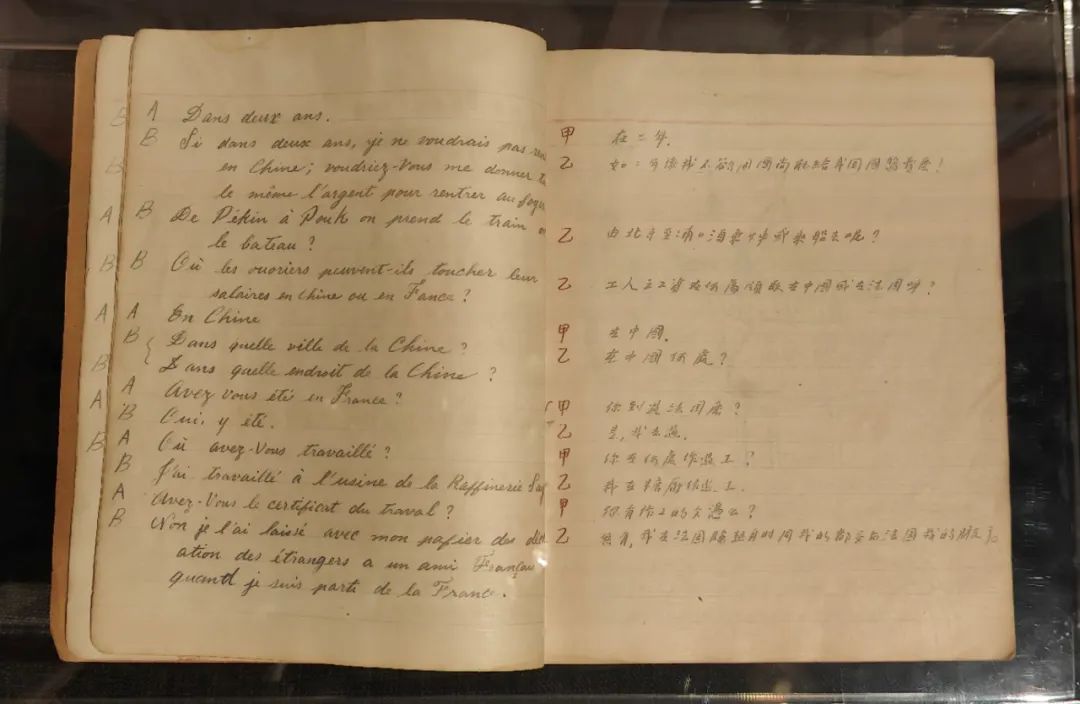 A Dans deux ans.
B Si dans deux ans, je ne voudrais pas
en Chine; voudriez-Vous me donner
le même l'argent pour rentrer au
A B De Pékin à Pouk on prend le train
le bateau ?
B B Où les ouoriers peuvent-ils toucher leur
salaires en Chine ou en Fance ?
A A En Chine
B Dans quelle ville de la Chine ?
B Dans quelle endroit de la Chine ?
A Avez vous été en France ?
A B Oui, y été.
B A Où avez-Vous travaillé ?
B J'ai travaillé à l'usine de la Raffinerie
A Avez-Vous le certificat du traval ?
B Non je l'ai laissé avec mon papier des
ation des étrangers a un ami Français
quand je suis parti de la France.
甲 在二年.
乙 如二年後我不欲回國尚能給我回國路費麽！
乙 由北京至浦口海乘火車或乘船去呢？
乙 工人之工資在何處領取在中國或在法國呢？
甲 在中國.
乙 在中國何處？
甲 你到過法國麽？
乙 是,我去過.
甲 你在何處作過工？
乙 我在糖廠作過工.
甲 你有作工的
乙 我在法國